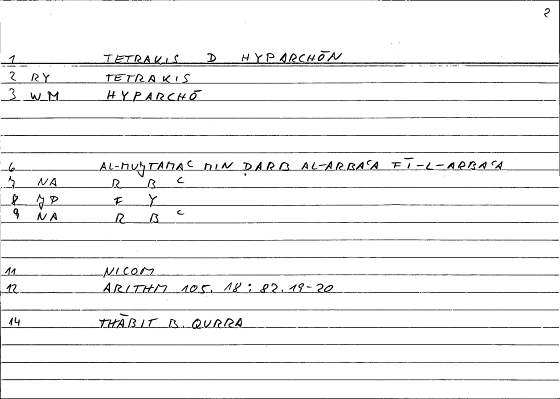 2
1 TETRAKIS D HYPARCHŌN
2 RY TETRAKIS
3 WM HYPARCHŌ
6 AL-MUJTAMAᶜ MIN ḌARB AL-ARBAᶜA FĪ-L-ARBAᶜA
7 NA R B ᶜ
8 JP F Y
9 NA R B ᶜ
11 NICOM
12 ARITHM 105. 18 : 82. 19-20
14 THĀBIT B. QURRA